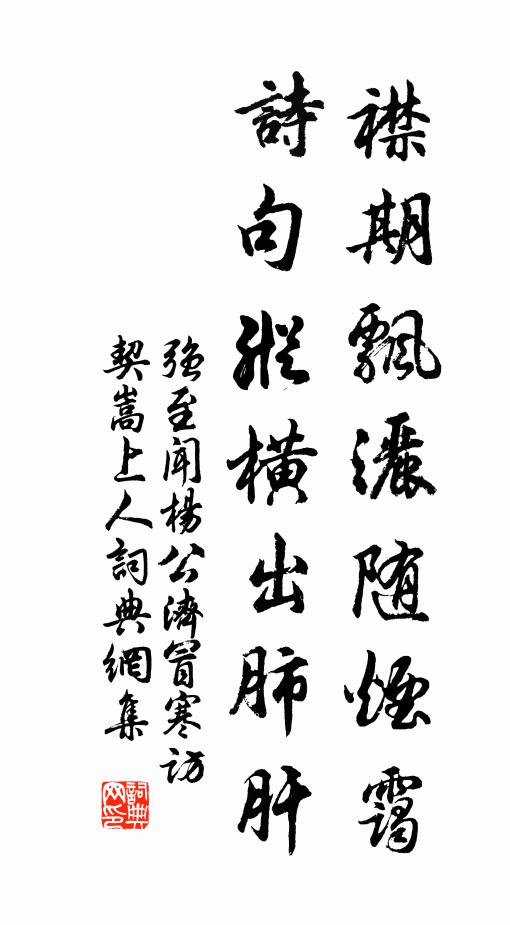 襟期飄灑随煙靄
詩句縱橫出肺肝
強至聞楊公濟冒寒訪
契嵩上人詞典網集
詞典网印